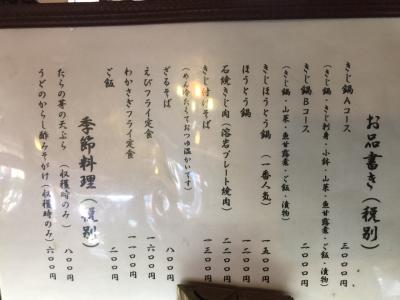 お品書き（税別）
きじ鍋Aコース　三〇〇〇円
（きじ鍋・きじ刺身・小鉢・山菜・魚甘露煮・ご飯・漬物）
きじ鍋Bコース　二〇〇〇円
（きじ鍋・山菜・魚甘露煮・ご飯・漬物）
きじほうとう鍋　（一番人気）　一五〇〇円
ほうとう鍋　一二〇〇円
石焼きじ肉（溶岩プレート焼肉）　二二〇〇円
きじ付けそば　一三〇〇円
（めん冷たくておつゆ温かいです）
ざるそば　八〇〇円
えびフライ定食　一六〇〇円
わかさぎフライ定食　一一〇〇円
ご飯　二〇〇円
季節料理（税別）
たらの芽の天ぷら　（収穫時のみ）　八〇〇円
うどのからし酢みそがけ（収穫時のみ）六〇〇円